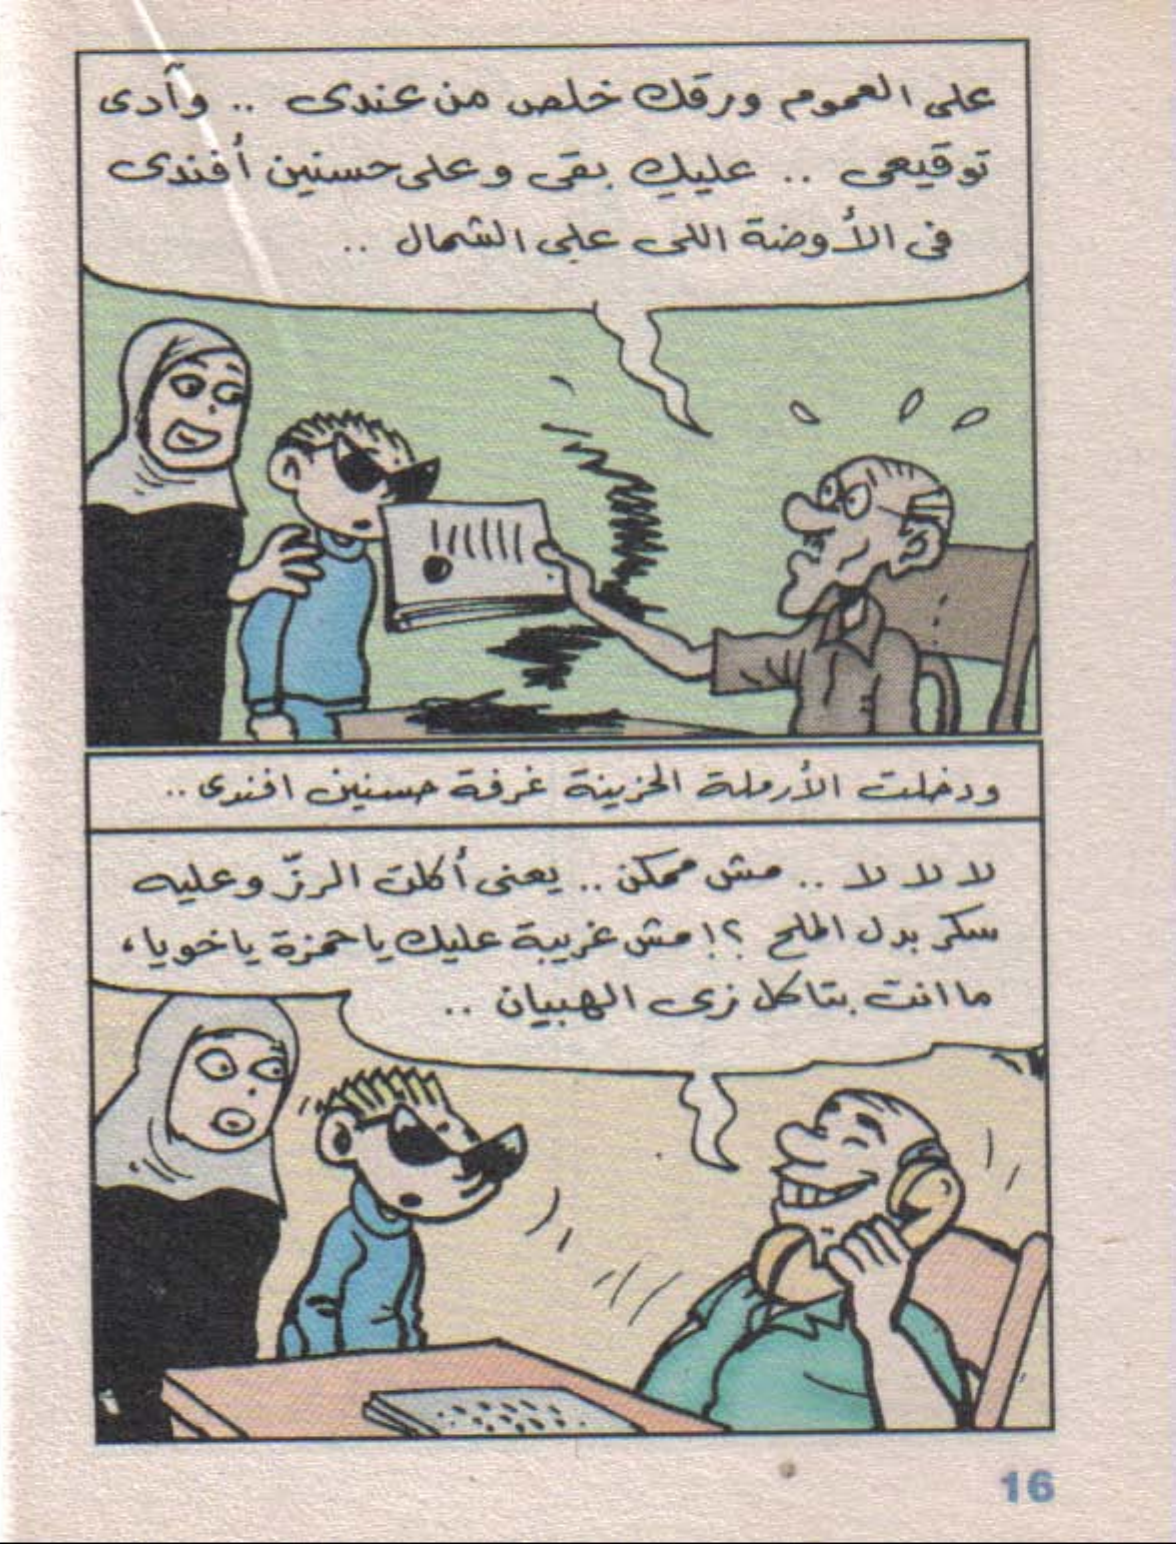 على العموم ورقك خلص من عندى .. وآدى
توقيعى .. عليكِ بقى وعلى حسنين أفندى
فى الأوضة اللى على الشمال ..
ودخلت الأرملة الحزينة غرفة حسنين افندى ..
لا لا لا .. مش ممكن .. يعنى أكلت الرزّ وعليه
سكر بدل الملح ؟! مش غريبة عليك ياحمزة ياخويا،
ما انت بتاكل زى الهبيان ..
16